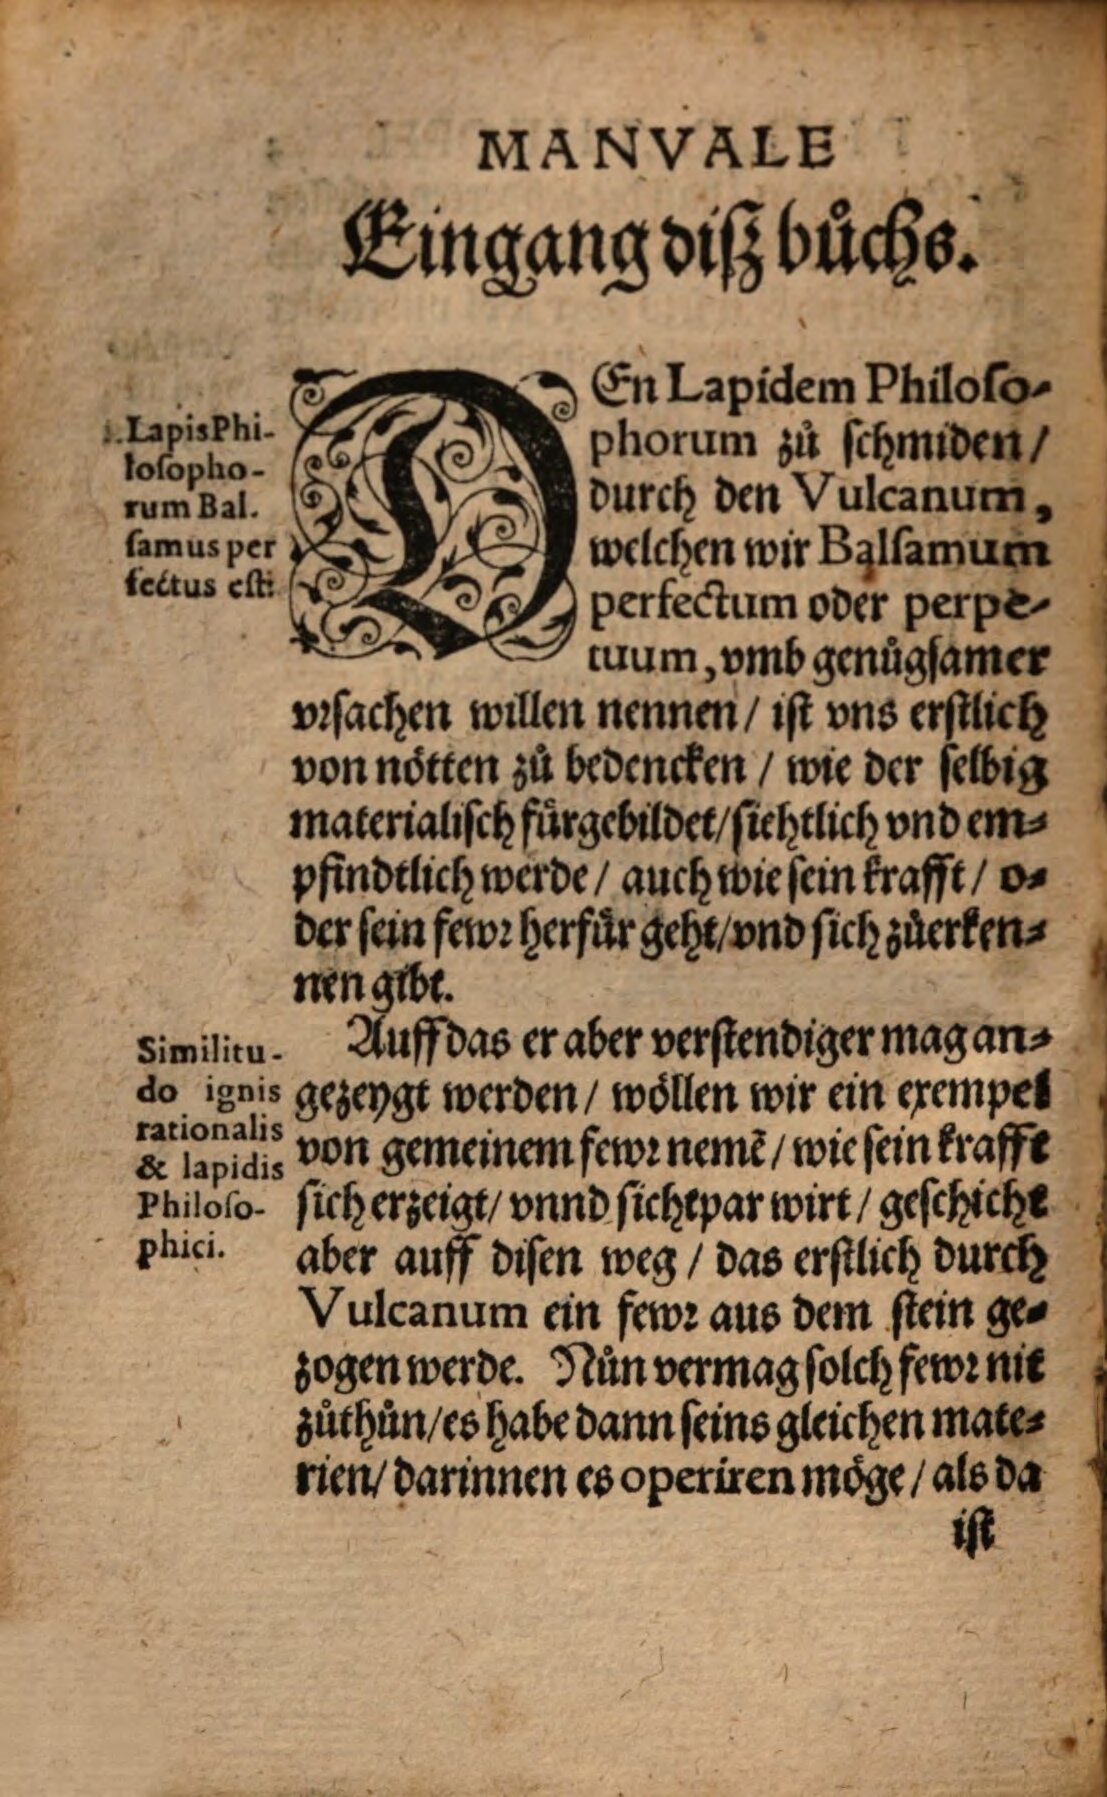 MANVALE
Eingang diſz bůchs.
LapisPhi-
loſopho-
rum Bal.
ſamus per
fectus eſt:
DEn Lapidem Philoſo-
phorum zů ſchmiden/
durch den Vulcanum,
welchen wir Balſamum
perfectum oder perpe-
tuum, vmb genůgſamer
vrſachen willen nennen/ iſt vns erſtlich
von nötten zů bedencken / wie der ſelbig
materialiſch fürgebildet/ſiehtlich vnd em-
pfindtlich werde/ auch wie ſein krafft/ o-
der ſein fewr herfür geht/vnd ſich zůerken-
nen gibt.
Similitu-
do ignis
rationalis
& lapidis
Philoſo-
phici.
Auff das er aber verſtendiger mag an-
gezeygt werden/ wöllen wir ein exempel
von gemeinem fewr nemē/ wie ſein krafft
ſich erzeigt/ vnnd ſichtpar wirt/ geſchicht
aber auff diſen weg / das erſtlich durch
Vulcanum ein fewr aus dem ſtein ge-
zogen werde. Nůn vermag ſolch fewr nit
zůthůn/es habe dann ſeins gleichen mate-
rien/ darinnen es operiren möge/ als da
iſt